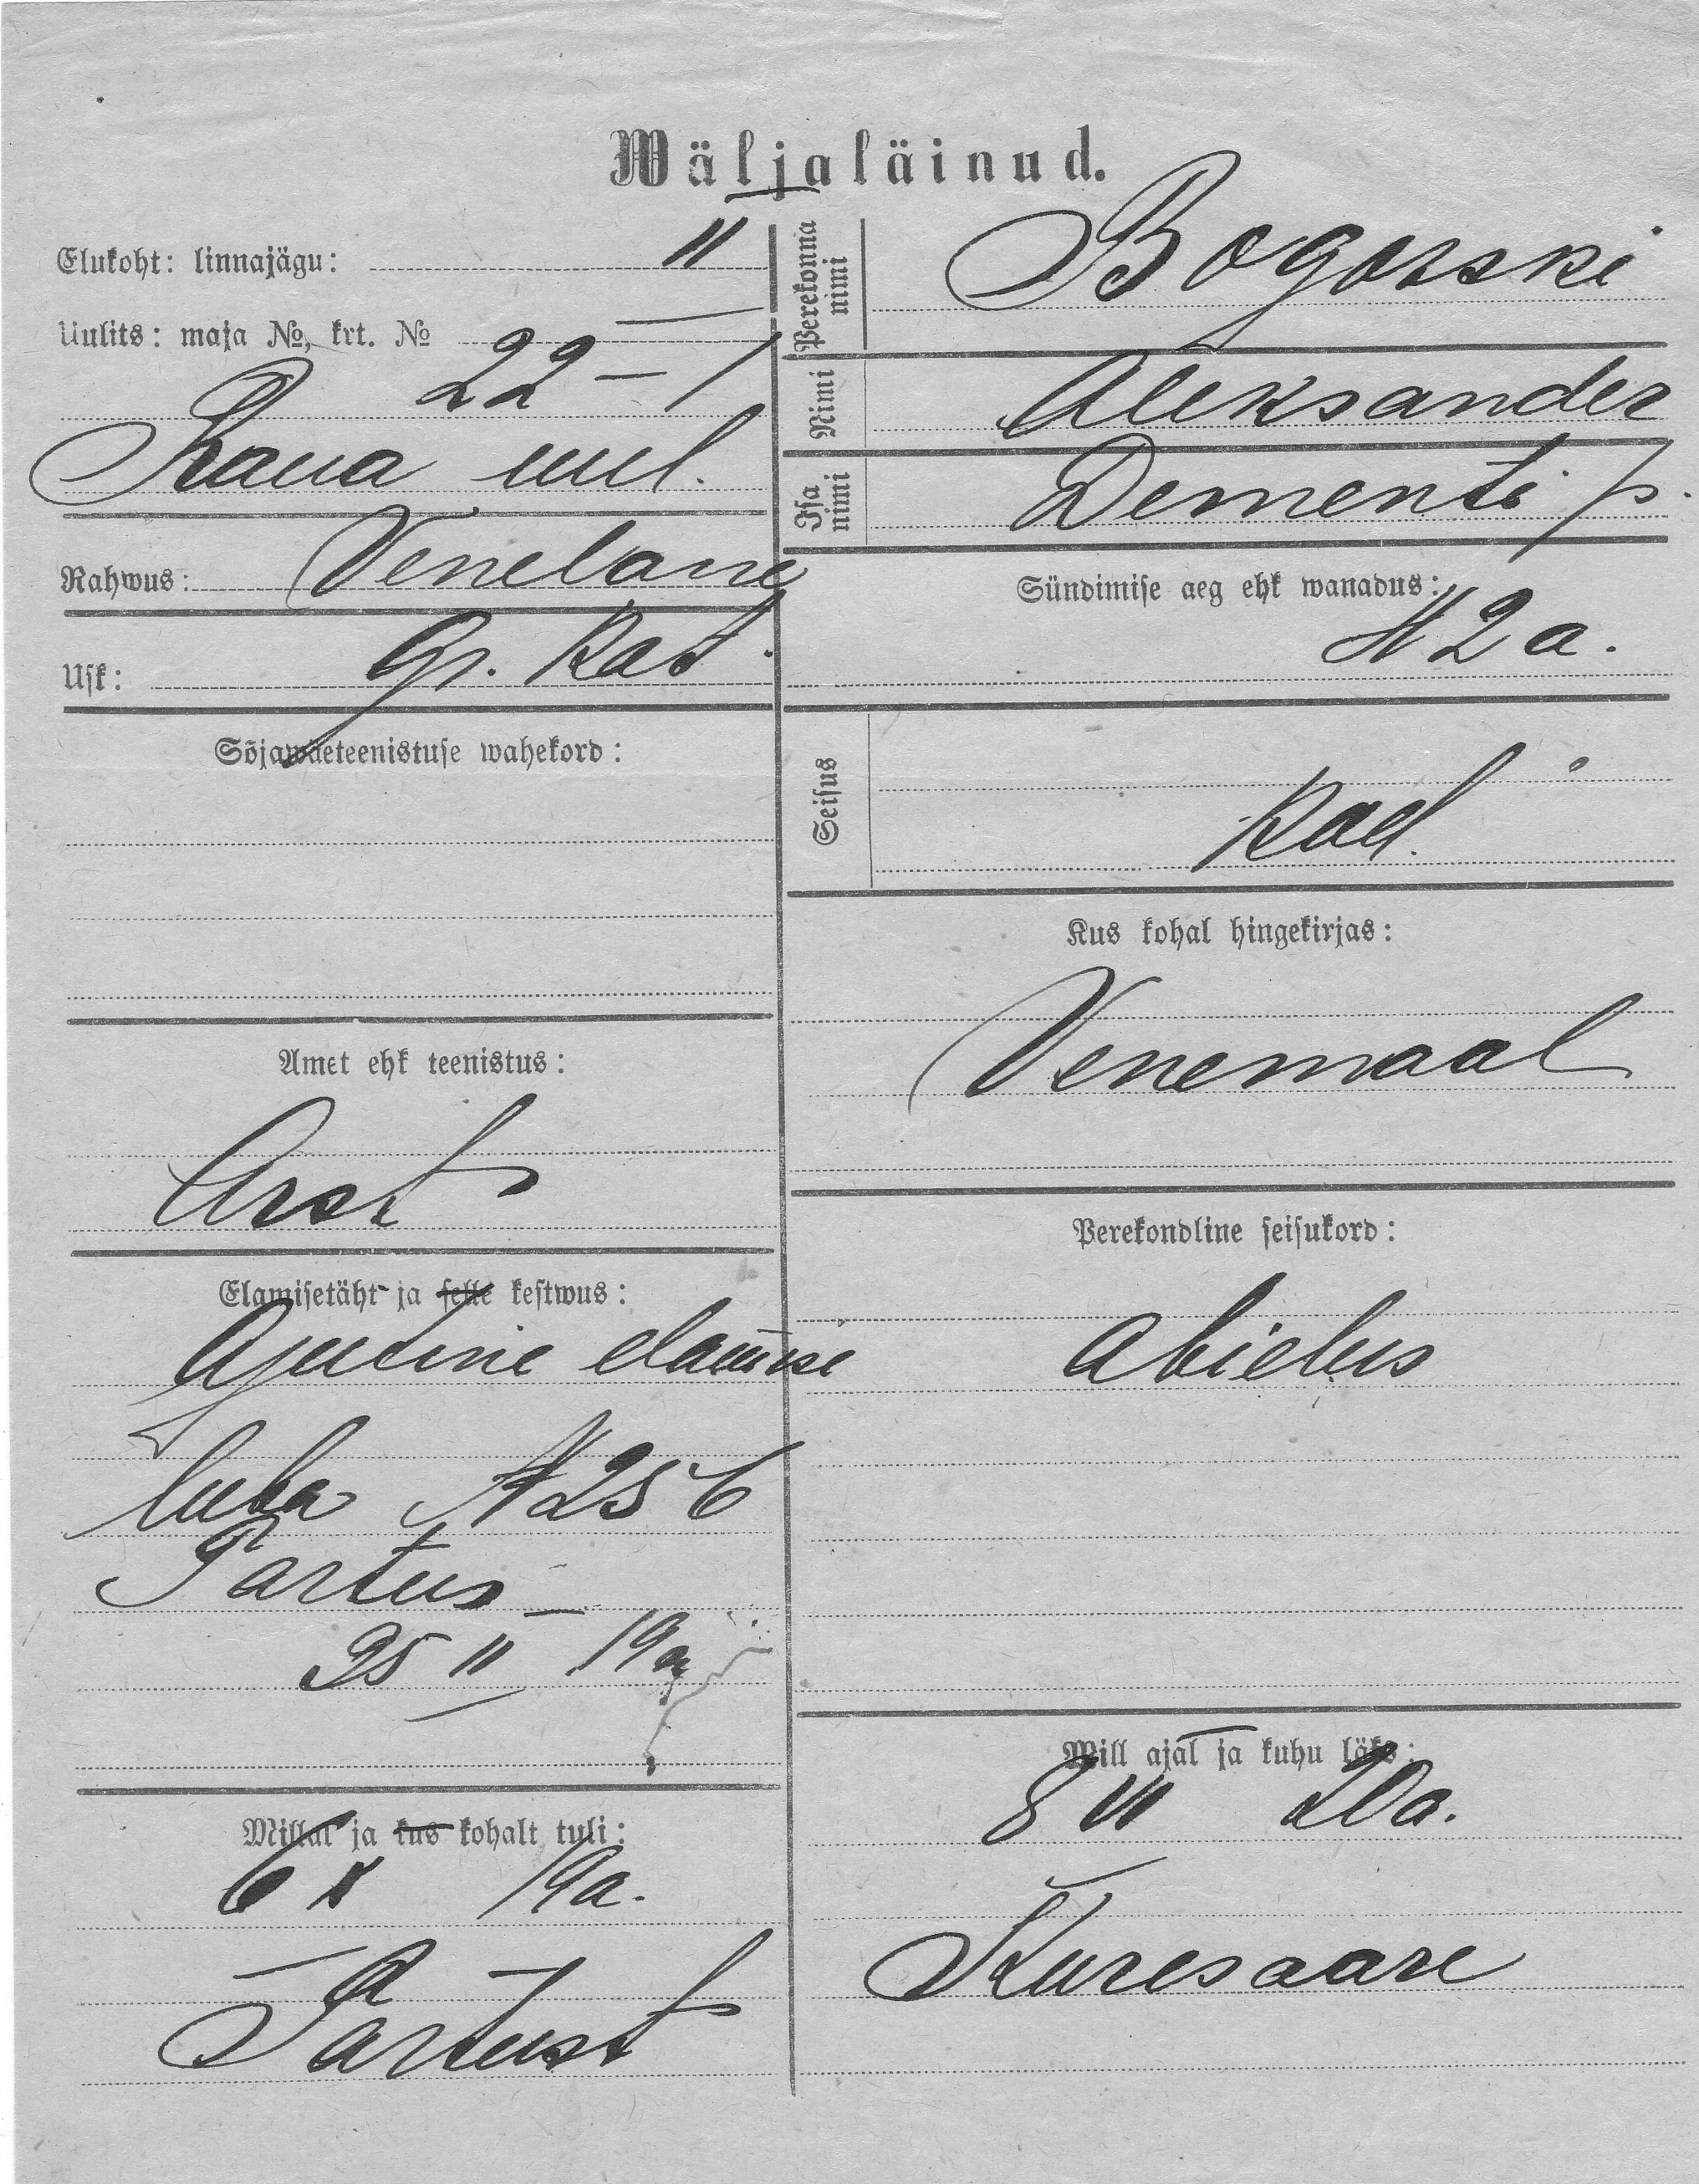 Wäljaläinud.
Elukoht: linnajägu: II
Uulits: maja №, krt. №
22 - 1
Raua uul.
Rahwus: Venelane
Usk: Gr. Kat.
Sõjawäeteenistuse wahekord:
Amet ehk teenistus:
Arst
Elamisetäht ja selle kestwus:
Ajutine elamise
luba № 256
Tartus
25 II 19a
Millal ja kus kohalt tuli:
6 X 19a.
Tartust
Perekonna nimi Bogorski
Nimi Aleksander
Isa nimi Dementi p.
Sündimise aeg ehk wanadus:
42 a.
Seisus
Kod.
Kus kohal hingekirjas:
Venemaal
Perekondline seisukord:
Abielus
Mill ajal ja kuhu läks:
8 VI 20a.
Kuresaare